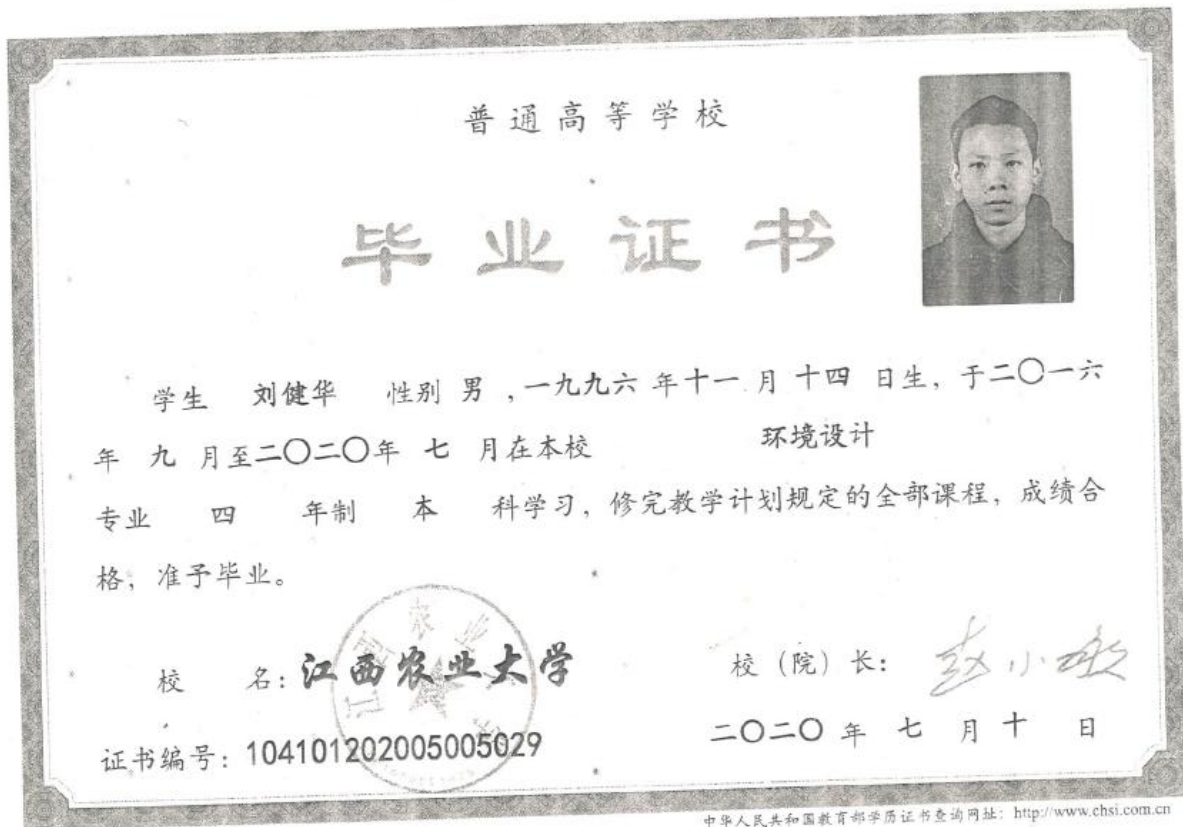 普通高等学校
毕业证书
学生 刘健华 性别 男 ,一九九六 年 十一 月 十四 日生, 于二〇一六
年 九 月至二〇二〇年 七 月在本校 环境设计
专业 四 年制 本 科学习, 修完教学计划规定的全部课程, 成绩合
格, 准予毕业。
校 名: 江西农业大学
校 (院) 长: 赵小敏
证书编号: 104101202005005029
二〇二〇 年 七 月 十 日
中华人民共和国教育部学历证书查询网址: http://www.chsi.com.cn